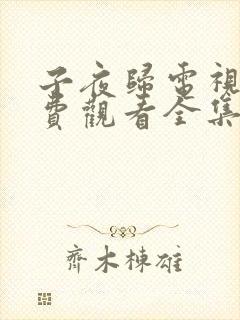 子夜歸電視
費觀看全集
齊木棟雄